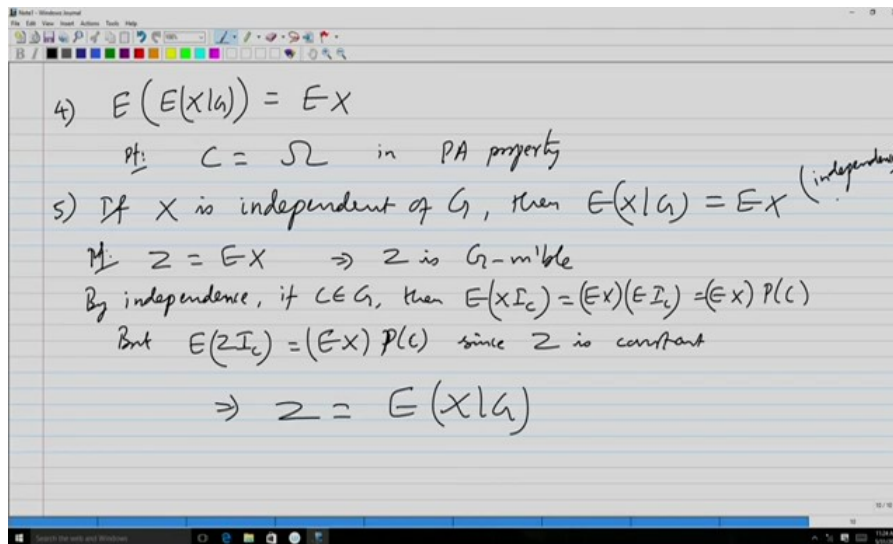 Note1 - Windows Journal
File Edit View Insert Actions Tools Help
B I
4) E(E(X|G)) = EX
Pf: C = Ω in PA property
5) If X is independent of G, then E(X|G) = EX (independence
Pf: Z = EX ⇒ Z is G-m'ble
By independence, if C∈G, then E(XI_C) = (EX)(EI_C) = (EX) P(C)
But E(ZI_C) = (EX) P(C) since Z is constant
⇒ Z = E(X|G)
Search the web and Windows